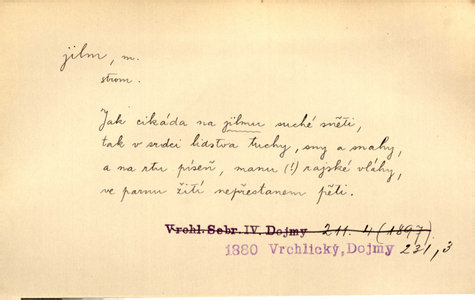 jilm, m.
strom.
Jak cikáda na jilmu suché sněti,
tak v srdci lidstva tuchy, sny a snahy,
a na rtu píseň, manu (!) rajské vláhy,
ve parnu žití nepřestanem pěti.
Vrchl. Sebr. IV. Dojmy 211. 4 (1897).
1880 Vrchlický, Dojmy 231, 3